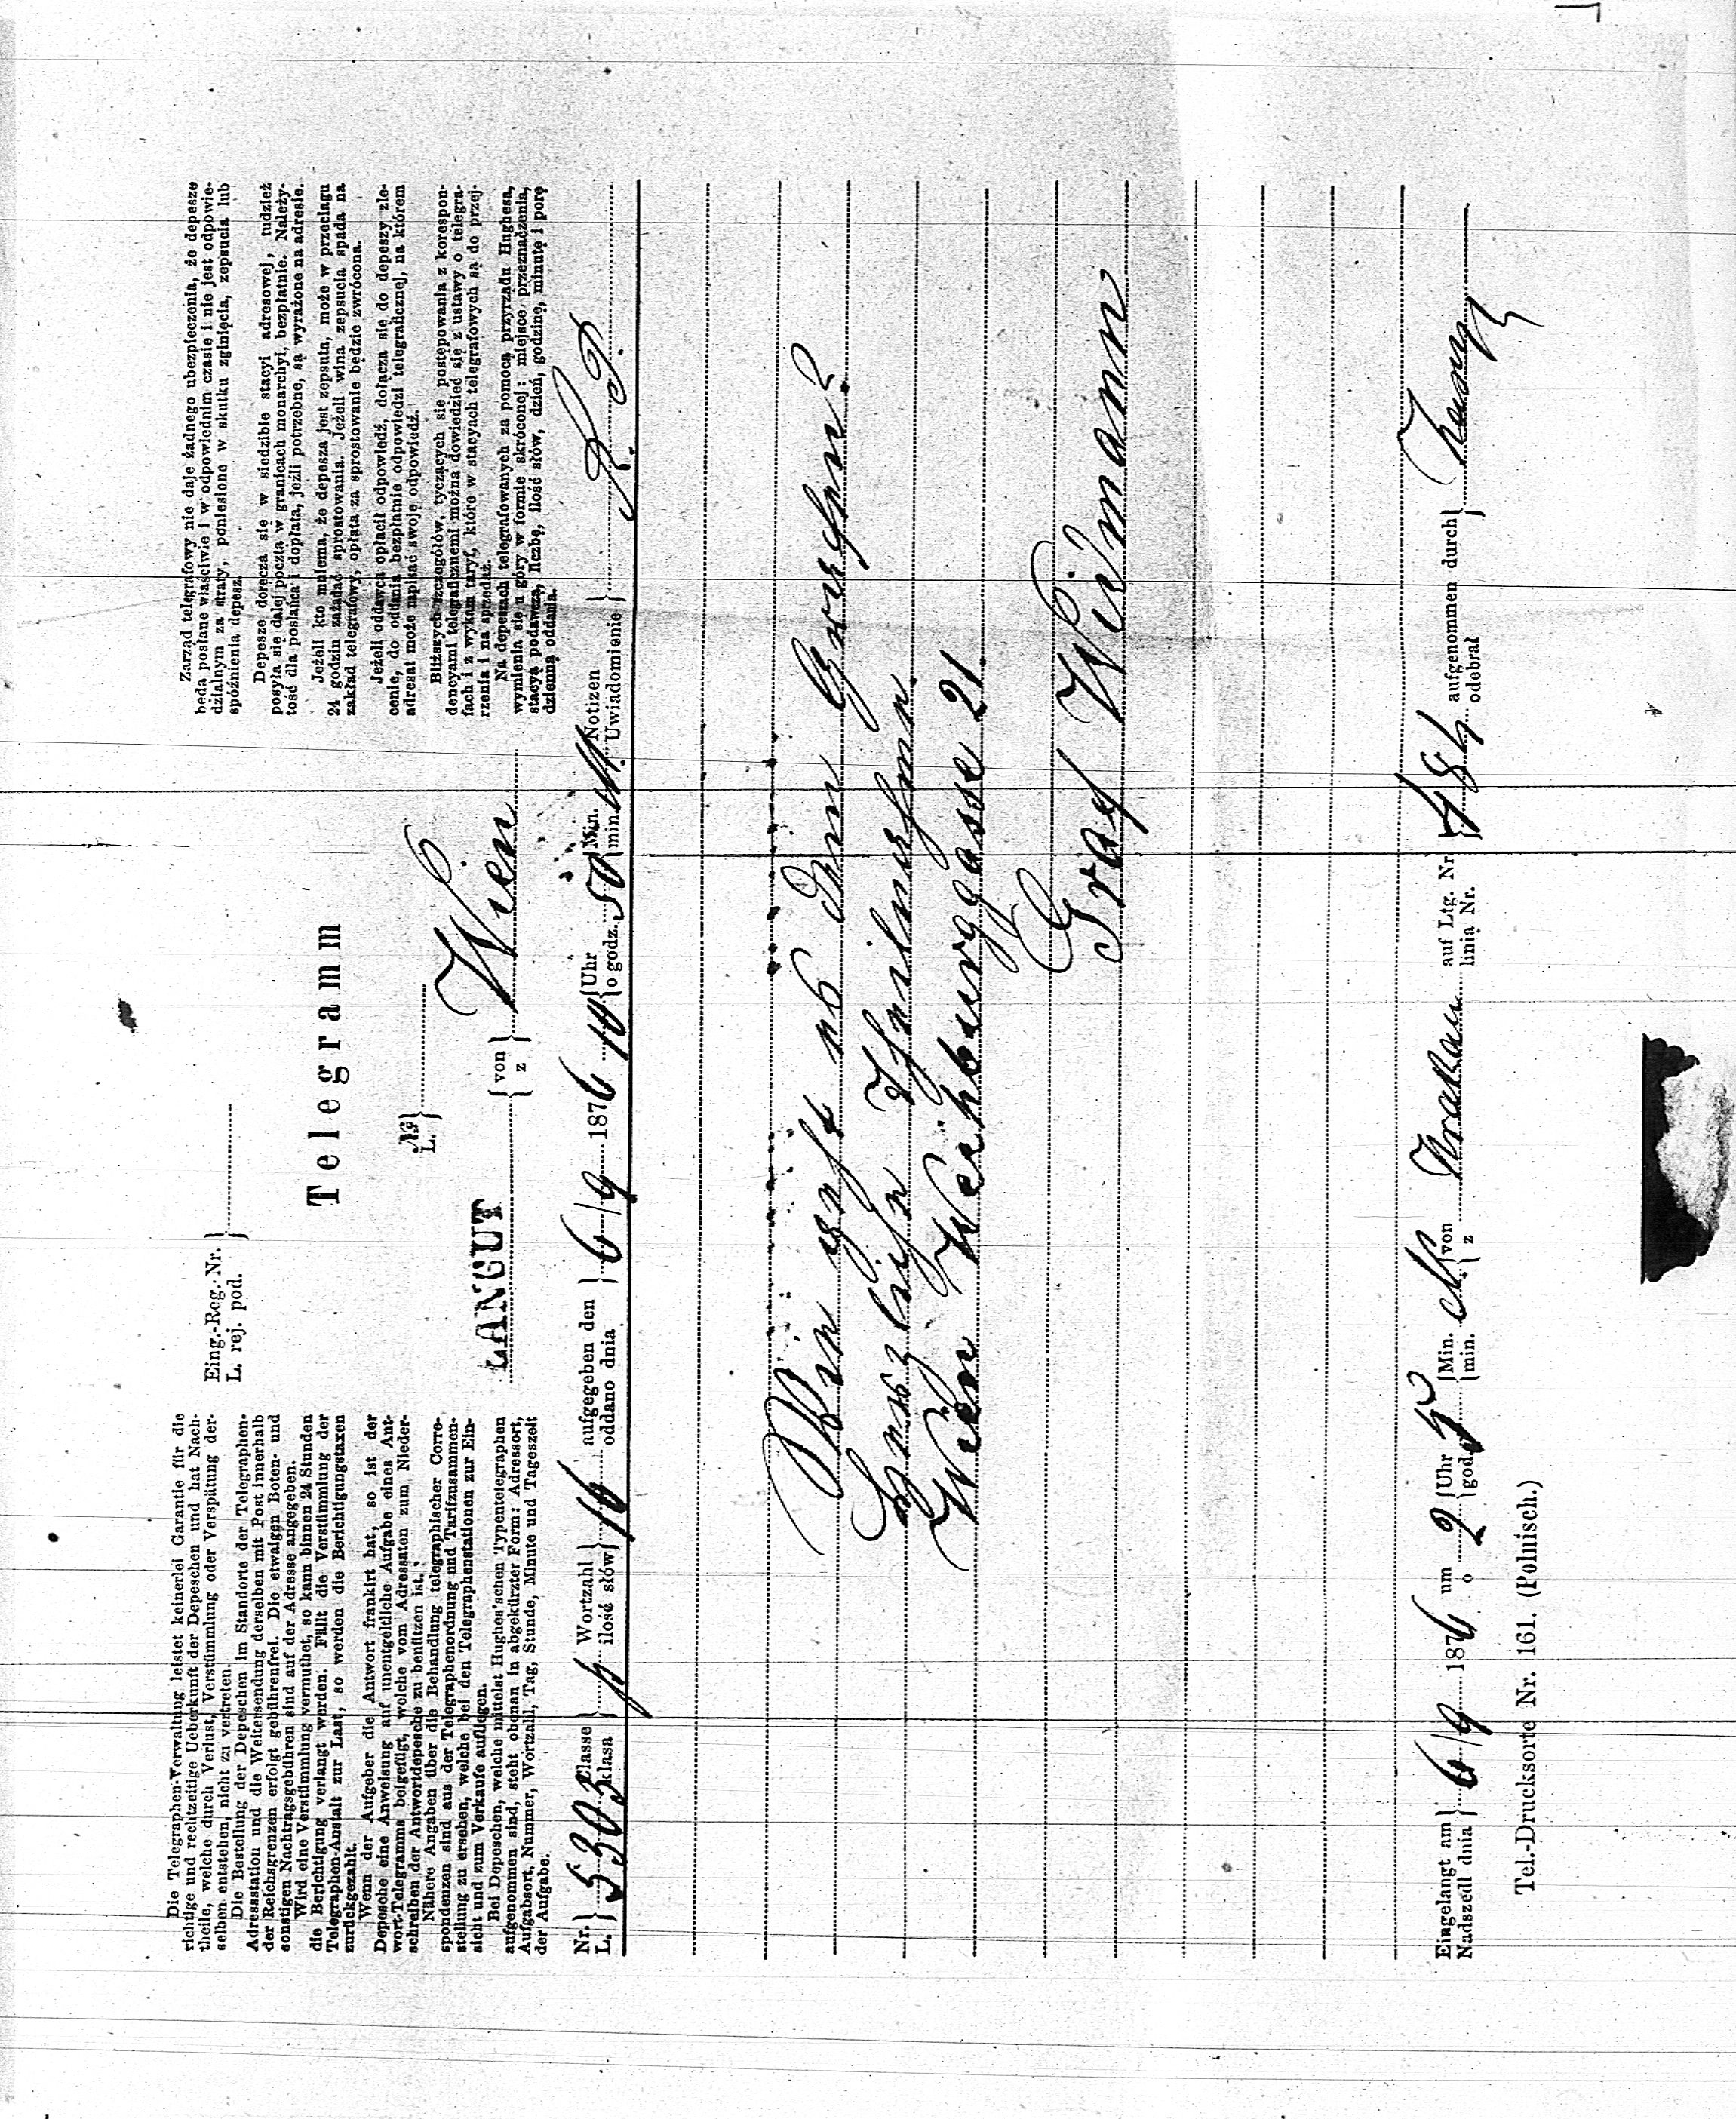 Die Telegraphen-Verwaltung leistet keinerlei Garantie für die
richtige und rechtzeitige Ueberkunft der Depeschen und hat Nach-
theile, welche durch Verlust, Verstümmlung oder Verspätung der-
selben entstehen, nicht zu vertreten.
Die Bestellung der Depeschen im Standorte der Telegraphen-
Adressstation und die Weitersendung derselben mit Post innerhalb
der Reichsgrenzen erfolgt gebührenfrei. Die etwaigen Boten- und
sonstigen Nachtragsgebühren sind auf der Adresse angegeben.
Wird eine Verstümmlung vermuthet, so kann binnen 24 Stunden
die Berichtigung verlangt werden. Fällt die Verstümmlung der
Telegraphen-Anstalt zur Last, so werden die Berichtigungstaxen
zurückgezahlt.
Wenn der Aufgeber die Antwort frankirt hat, so ist der
Depesche eine Anweisung auf unentgeltliche Aufgabe eines Ant-
wort-Telegramms beigefügt, welche vom Adressaten zum Nieder-
schreiben der Antwortdepesche zu benützen ist.
Nähere Angaben über die Behandlung telegraphischer Corre-
spondenzen sind aus der Telegraphenordnung und Tarifzusammen-
stellung zu ersehen, welche bei den Telegraphenstationen zur Ein-
sicht und zum Verkaufe aufliegen.
Bei Depeschen, welche mittelst Hughes'schen Typentelegraphen
aufgenommen sind, steht obenan in abgekürzter Form: Adressort,
Aufgabsort, Nummer, Wortzahl, Tag, Stunde, Minute und Tageszeit
der Aufgabe.
Eing.-Reg. Nr.
L. rej. pod.
Telegramm
№
L.
LANCUT von z Wien
Zarząd telegrafowy nie daje żadnego ubezpieczenia, że depesze
będą posłane właściwie i w odpowiednim czasie i nie jest odpowie-
dzialnym za straty, poniesione w skutku zginięcia, zepsucia lub
spóźnienia depesz.
Depesze doręcza się w siedzibie stacyi adresowej, tudzież
posyła się dalej pocztą w granicach monarchyi, bezpłatnie. Należy-
tość dla posłańca i dopłata, jeżli potrzebne, są wyrażone na adresie.
Jeżeli kto mniema, że depesza jest zepsuta, może w przeciągu
24 godzin zażądać sprostowania. Jeżeli wina zepsucia spada na
zakład telegrafowy, opłata za sprostowanie będzie zwrócona.
Jeżeli oddawca opłacił odpowiedź, dołącza się do depeszy zle-
cenie, do oddania bezpłatnie odpowiedzi telegraficznej, na którem
adresat może napisać swoję odpowiedź.
Bliższych szczegółów, tyczących się postępowania z korespon-
dencyami telegraficznemi można dowiedzieć się z ustawy o telegra-
fach i z wykazu taryf, które w stacyach telegrafowych są do przej-
rzenia i na sprzedaż.
Na depeszach telegrafowanych za pomocą przyrządu Hughesa,
wymienia się u góry w formie skróconej: miejsce przeznaczenia,
stacyą podawczą, liczbę, ilość słów, dzień, godzinę, minutę i porę
dzienną oddania.
Nr. L. 5303 Classe klasa Wortzahl ilość słów 16 aufgegeben den oddano dnia 6/9 1876 10 Uhr o godz. 50 Min. min. M. Notizen Uwiadomienie R. P.
Wie geht es dem Kranken?
Herzliche Theilnahme.
Wien Weihburggasse 21.
Graf Widmann
Eingelangt am Nadszedł dnia 6/9 1876 um o 2 Uhr god. Min. min. von z Krakau auf Ltg. Nr. linia Nr. 484 aufgenommen durch odebrał
Tel.-Drucksorte Nr. 161. (Polnisch.)